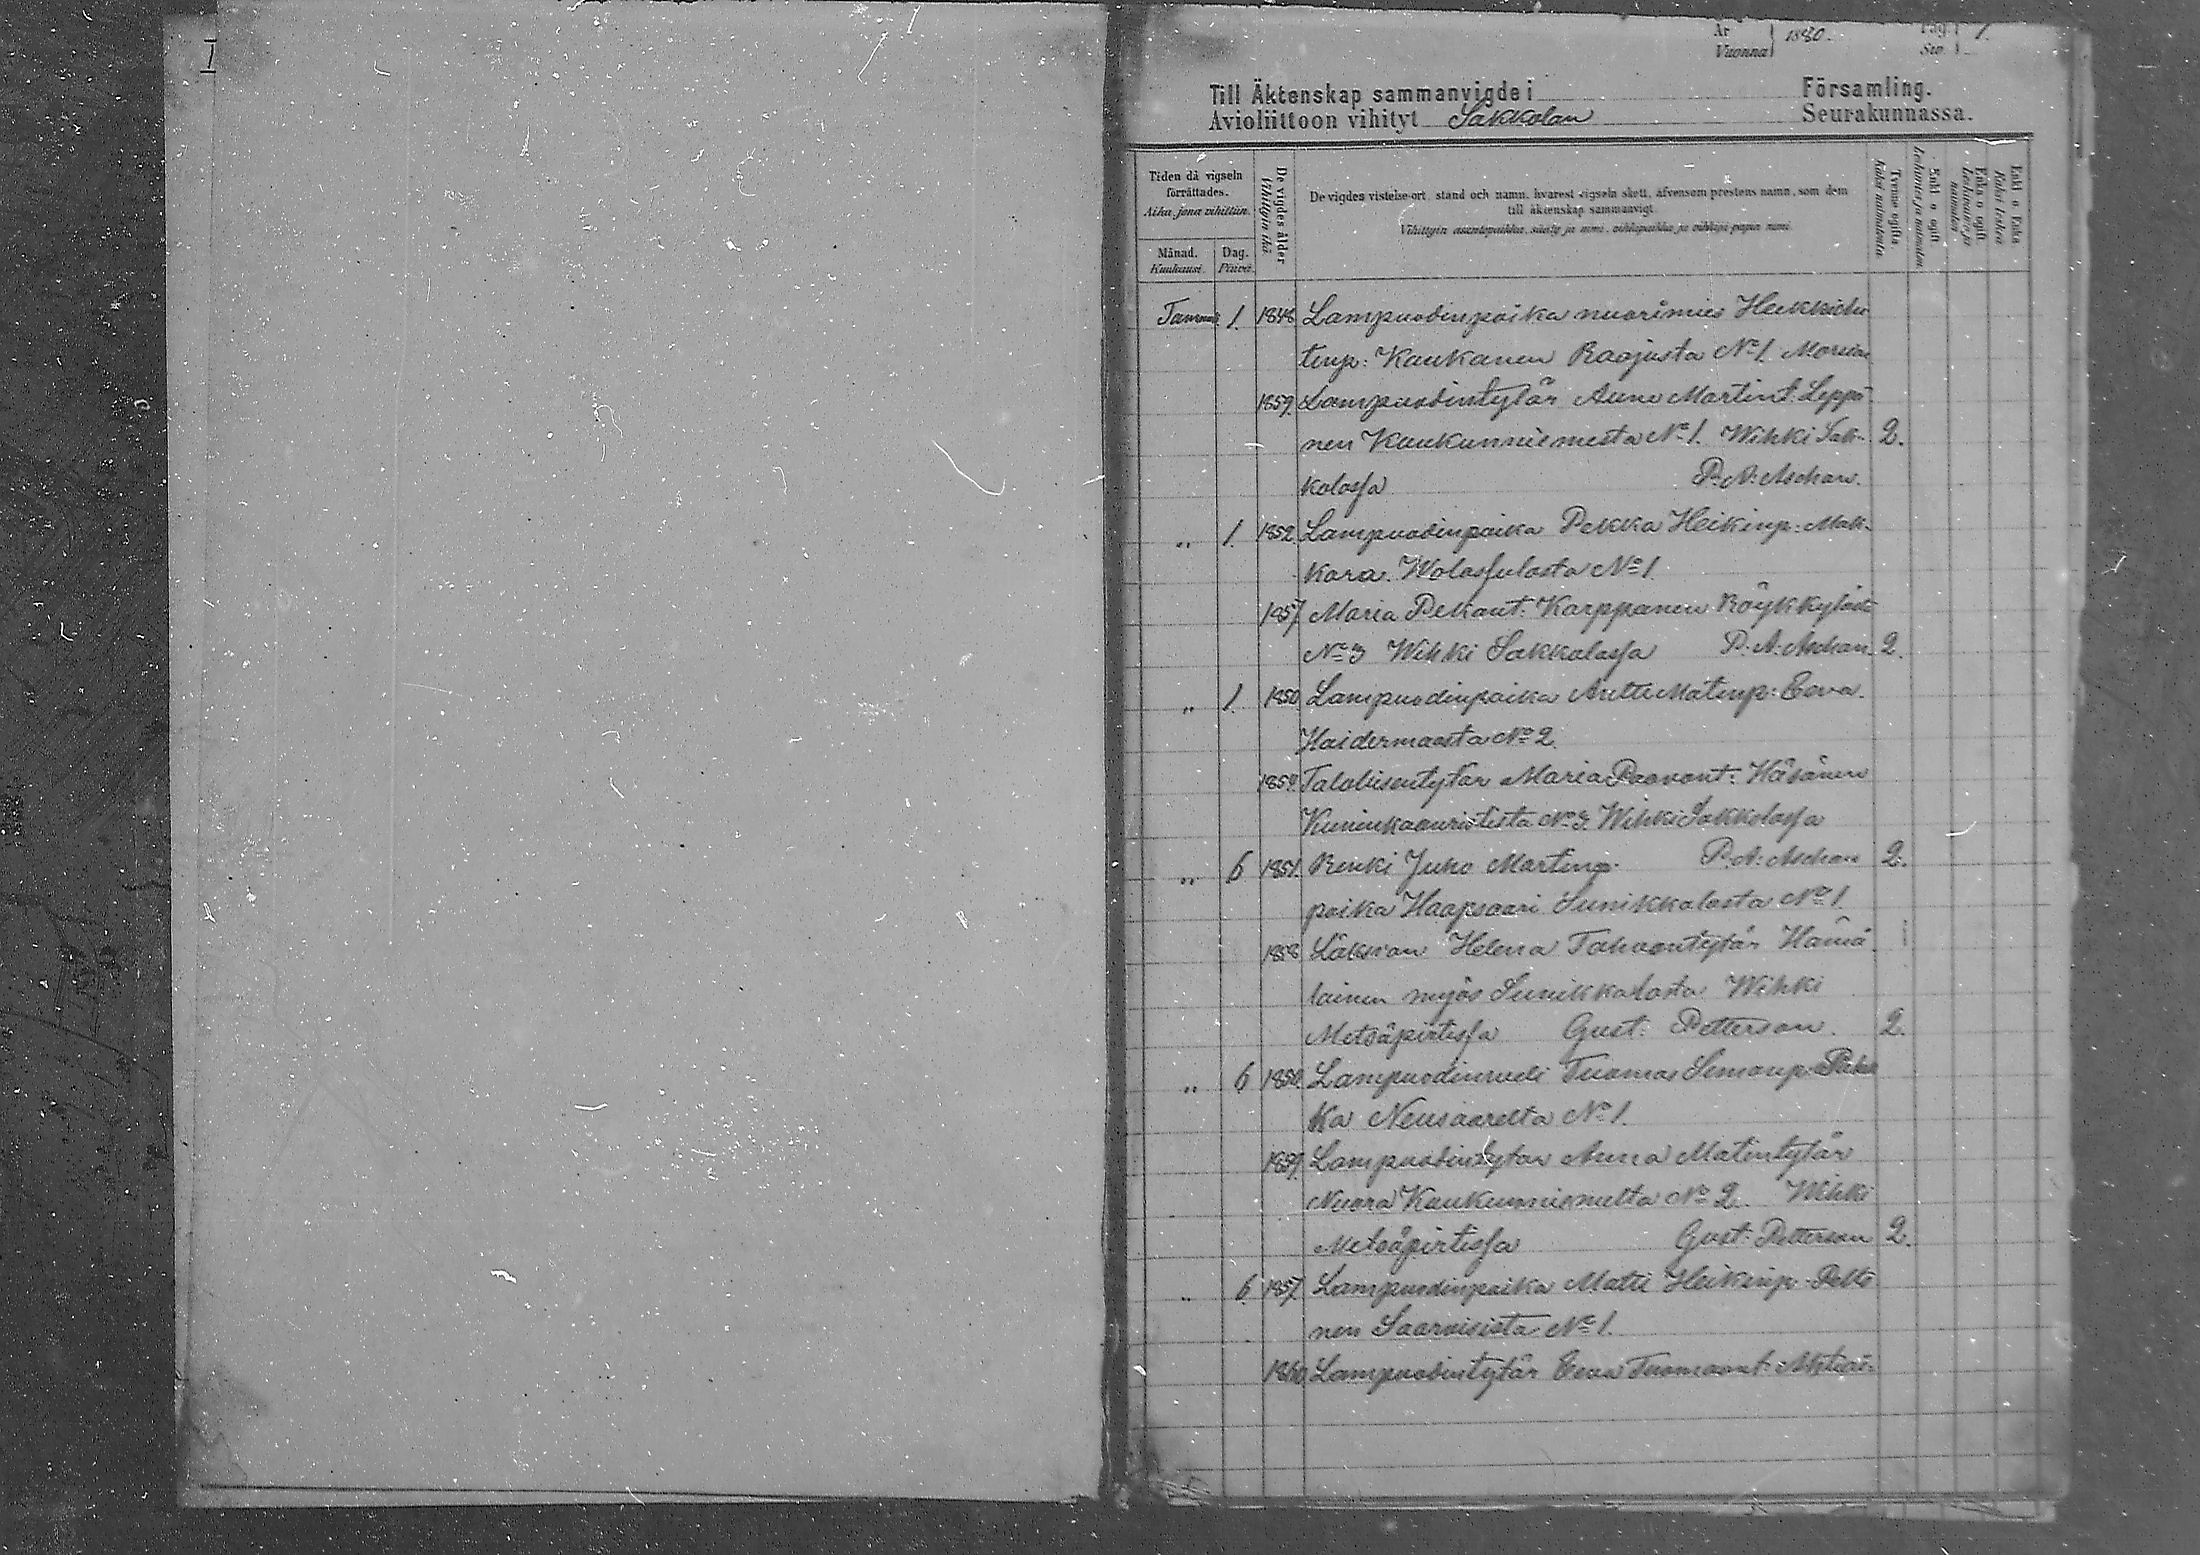 I
År 1880. Pag. 1.
Vuonna Siv.
Till Äktenskap sammanvigde i Församling.
Avioliittoon vihityt Sakkolan Seurakunnassa.
Tiden då vigseln förrättades.
Aika, jona vihittiin.
Månad.
Kuukausi.
Dag.
Päivä.
De vigdes ålder
Vihittyin ikä.
De vigdes vistelse-ort, stånd och namn, hvarest vigseln skett, äfvensom prestens namn, som dem
till äktenskap sammanvigt.
Vihittyin asuntopaikka, sääty ja nimi, vihkopaikka ja vihkijä-papin nimi.
Tvenne ogifta.
Kaksi naimatonta
Enkl. o. ogift
Leskimies ja naimaton
Enka o. ogift
Leskivaimo ja naimaton
Enkl. o. Enka
Kaksi leskeä
Tammik. 1. 1848 Lampuodinpoika nuorimies Heikki
tinp: Kaukanen Raajusta No 1.
1859. Lampuodintytär Anna Martint. Leppä-
nen Kaukunniemestä No 1. Wihki Sak- 2.
kolassa P. A: Aschan.
„ 1. 1852. Lampuodinpoika Pekka Heikinp: Mak-
kara. Wolossulasta No 1
1857 Maria Pekant: Karppanen Röykkylästä
No 3 Wihki Sakkolassa P. A: Aschan. 2.
„ 1. 1850 Lampuodinpoika Antti Matinp: Eeva.
Haidermaasta No 2.
1859. Talollisentytär Maria Paavont: Häsänen
Kuninkaanrististä No 3. Wihki Sakkolassa
P. A: Aschan 2.
„ 6 1851. Renki Juho Martinp.
poika Haapsaari Sunikkalasta No 1.
1858 Helena Tahvontytär Hämä-
lainen myös Sunikkalasta Wihki
Metsäpirtissä Gust: Petterson. 2.
„ 6 1850 Lampuodinvedi Tuomas Simonp:
ka Neusaarelta No 1.
1859. Lampuodintytär Anna Matintytär
Nuora Kaukunniemeltä No 2. Wihki
Metsäpirtissä Gust: Petterson 2.
„ 6. 1857 Lampuodinpoika Matti Heikinp: Pelto
nen Saaroisista No 1.
1860 Lampuodintytär Eeva Tuomaant: